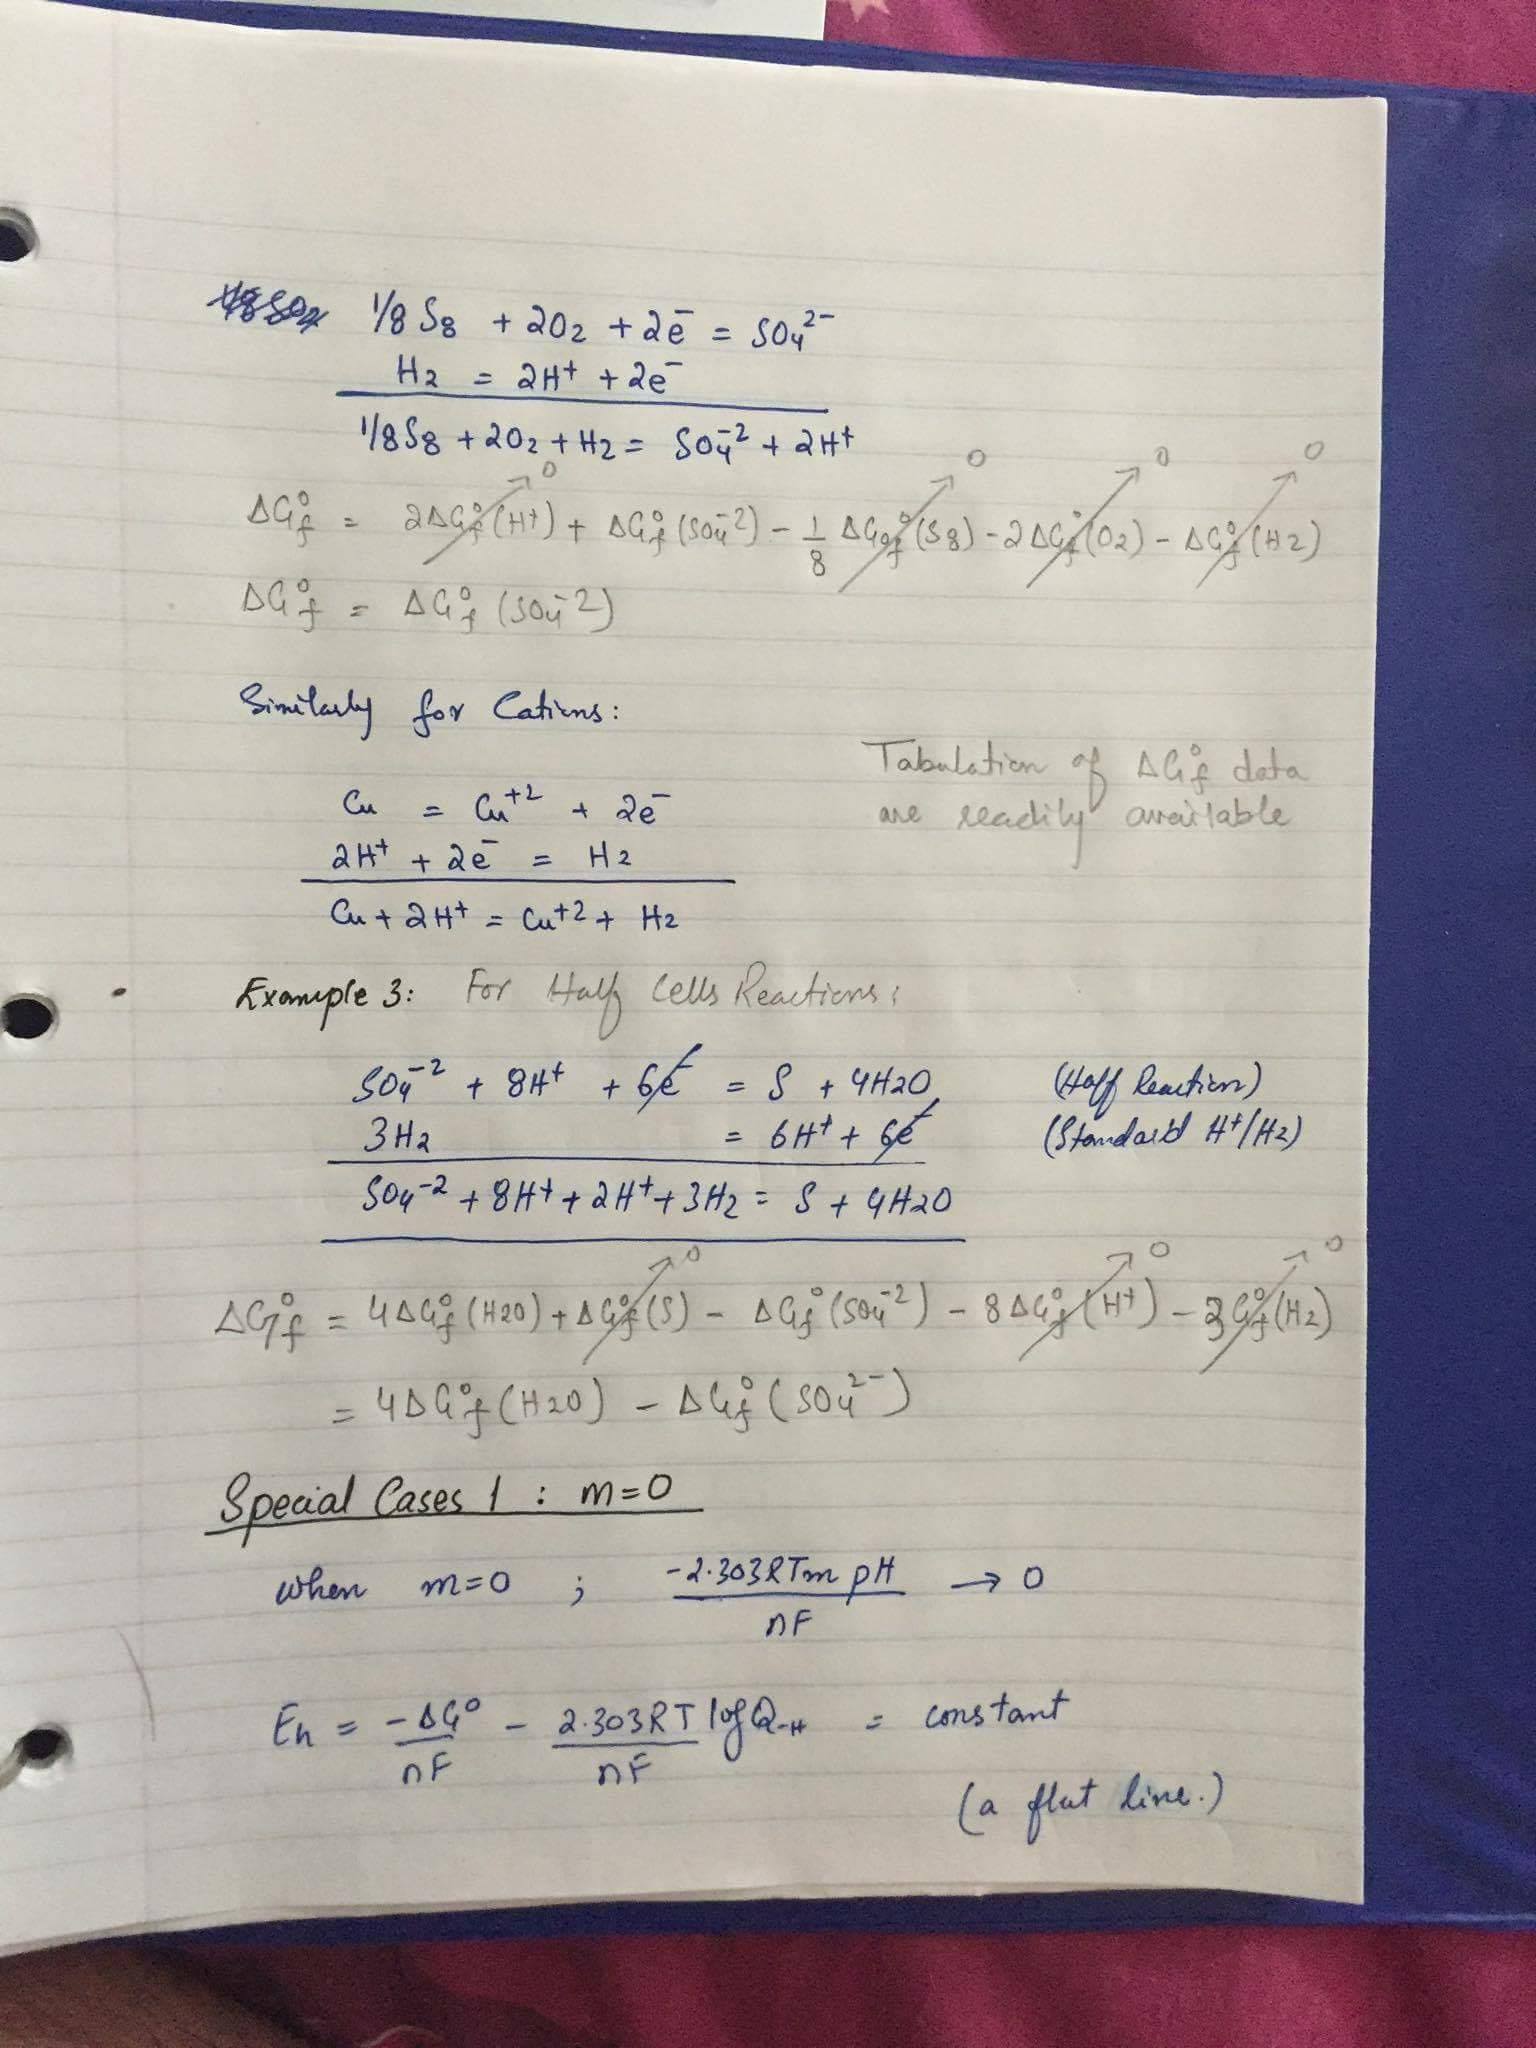 1/8 S8 + 2O2 + 2e⁻ = SO4²⁻
H2 = 2H⁺ + 2e⁻
1/8 S8 + 2O2 + H2 = SO4⁻² + 2H⁺
ΔG°f = 2ΔG°f (H⁺)→0 + ΔG°f (SO4⁻²) - 1/8 ΔG°f (S8)→0 - 2ΔG°f (O2)→0 - ΔG°f (H2)→0
ΔG°f = ΔG°f (SO4⁻²)
Similarly for Cations:
Tabulation of ΔG°f data
are readily available
Cu = Cu⁺² + 2e⁻
2H⁺ + 2e⁻ = H2
Cu + 2H⁺ = Cu⁺² + H2
Example 3: For Half Cells Reactions:
SO4⁻² + 8H⁺ + 6e⁻ = S + 4H2O (Half Reaction)
3H2 = 6H⁺ + 6e⁻ (Standard H⁺/H2)
SO4⁻² + 8H⁺ + 2H⁺ + 3H2 = S + 4H2O
ΔG°f = 4ΔG°f (H2O) + ΔG°f (S)→0 - ΔG°f (SO4⁻²) - 8ΔG°f (H⁺)→0 - 3G°f (H2)→0
= 4ΔG°f (H2O) - ΔG°f (SO4²⁻)
Special Cases 1 : m=0
when m=0 ; -2.303RTm pH / nF → 0
Eh = -ΔG° / nF - 2.303RT / nF log Q-H = constant
(a flat line.)